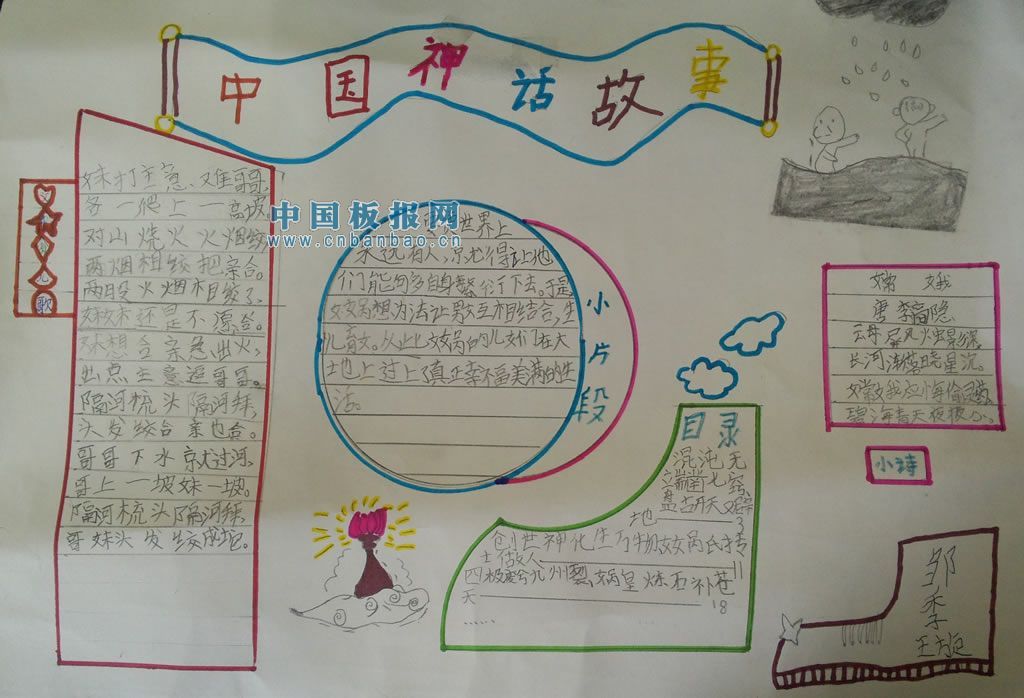 中国神话故事
歌
妹打主意难哥哥,
各一爬上一高坡
对山烧火火烟绞
两烟相绞把亲合。
两段火烟相绞了
妹妹还是不愿合。
妹想合亲急出火,
出点主意逗哥哥。
隔河梳头隔河拜,
头发绞合亲也合。
哥哥下水京尤过河,
哥上一坡妹一坡。
隔河梳头隔河拜,
哥妹头发绞成拖。
中国板报网
www.cnbanbao.cn
世界上
来了有人,京尤得让他
们能够多自身繁衍下去。于是
女娲想办法让男女互相结合,生
儿育女。从此女娲的儿女们在大
地上过上了真正幸福美满的生
活。
小片段
目录
混沌无
端凿七窍
盘古开天又辟
地 3
创世神化生万物女娲氏抟
土做人 11
四极变合九州裂娲皇炼石补苍
天 18
......
嫦娥
唐 李商隐
云母屏风火虫影深,
长河渐落晓星沉。
嫦娥应悔偷灵药,
碧海青天夜夜心。
小诗
邹
李